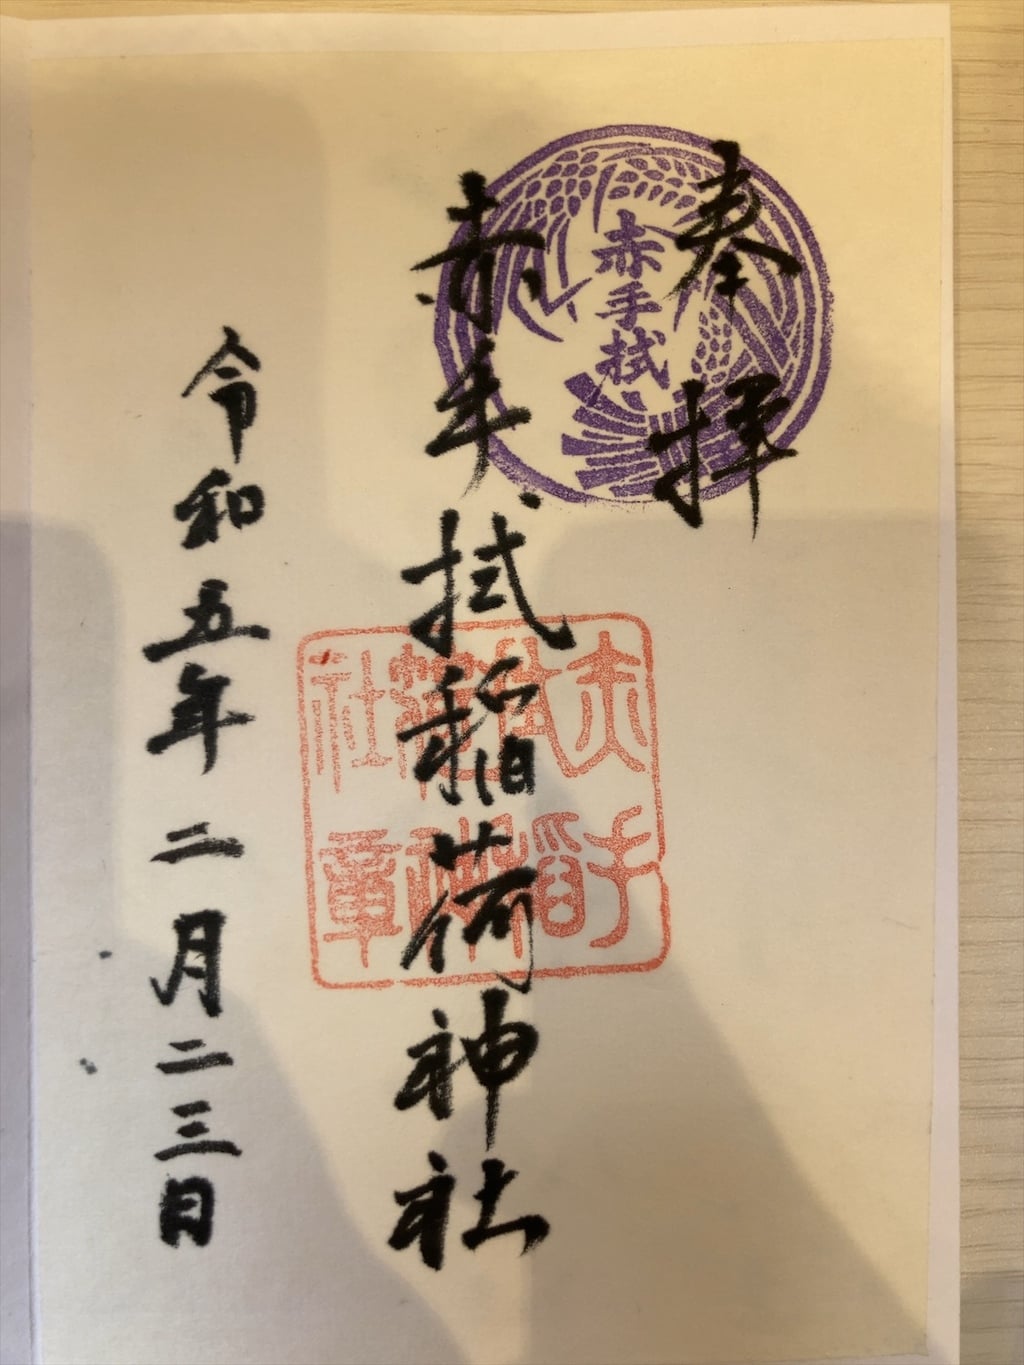 奉拝
赤手拭
赤手拭稲荷神社
赤手
拭稲荷神
社章
令和五年二月二三日